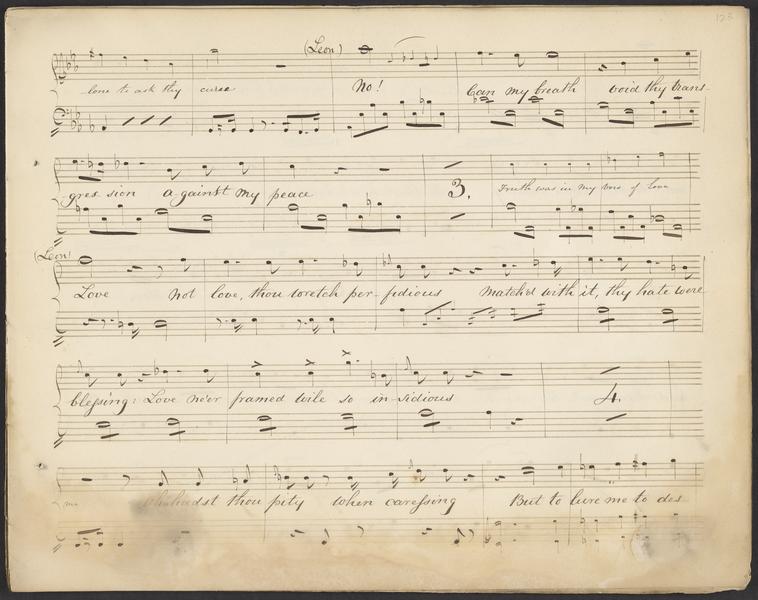 123
(Leon)
lone to ask thy curse No! Can my breath void thy trans-
gres sion a-gainst my peace 3. Truth was in my vow of love
Leon!
Love not love, thou wretch per-fidious Match'd with it, thy hate were
blessing: Love ne'er framed wile so in-sidious 4.
thou pity when caressing But to lure me to des